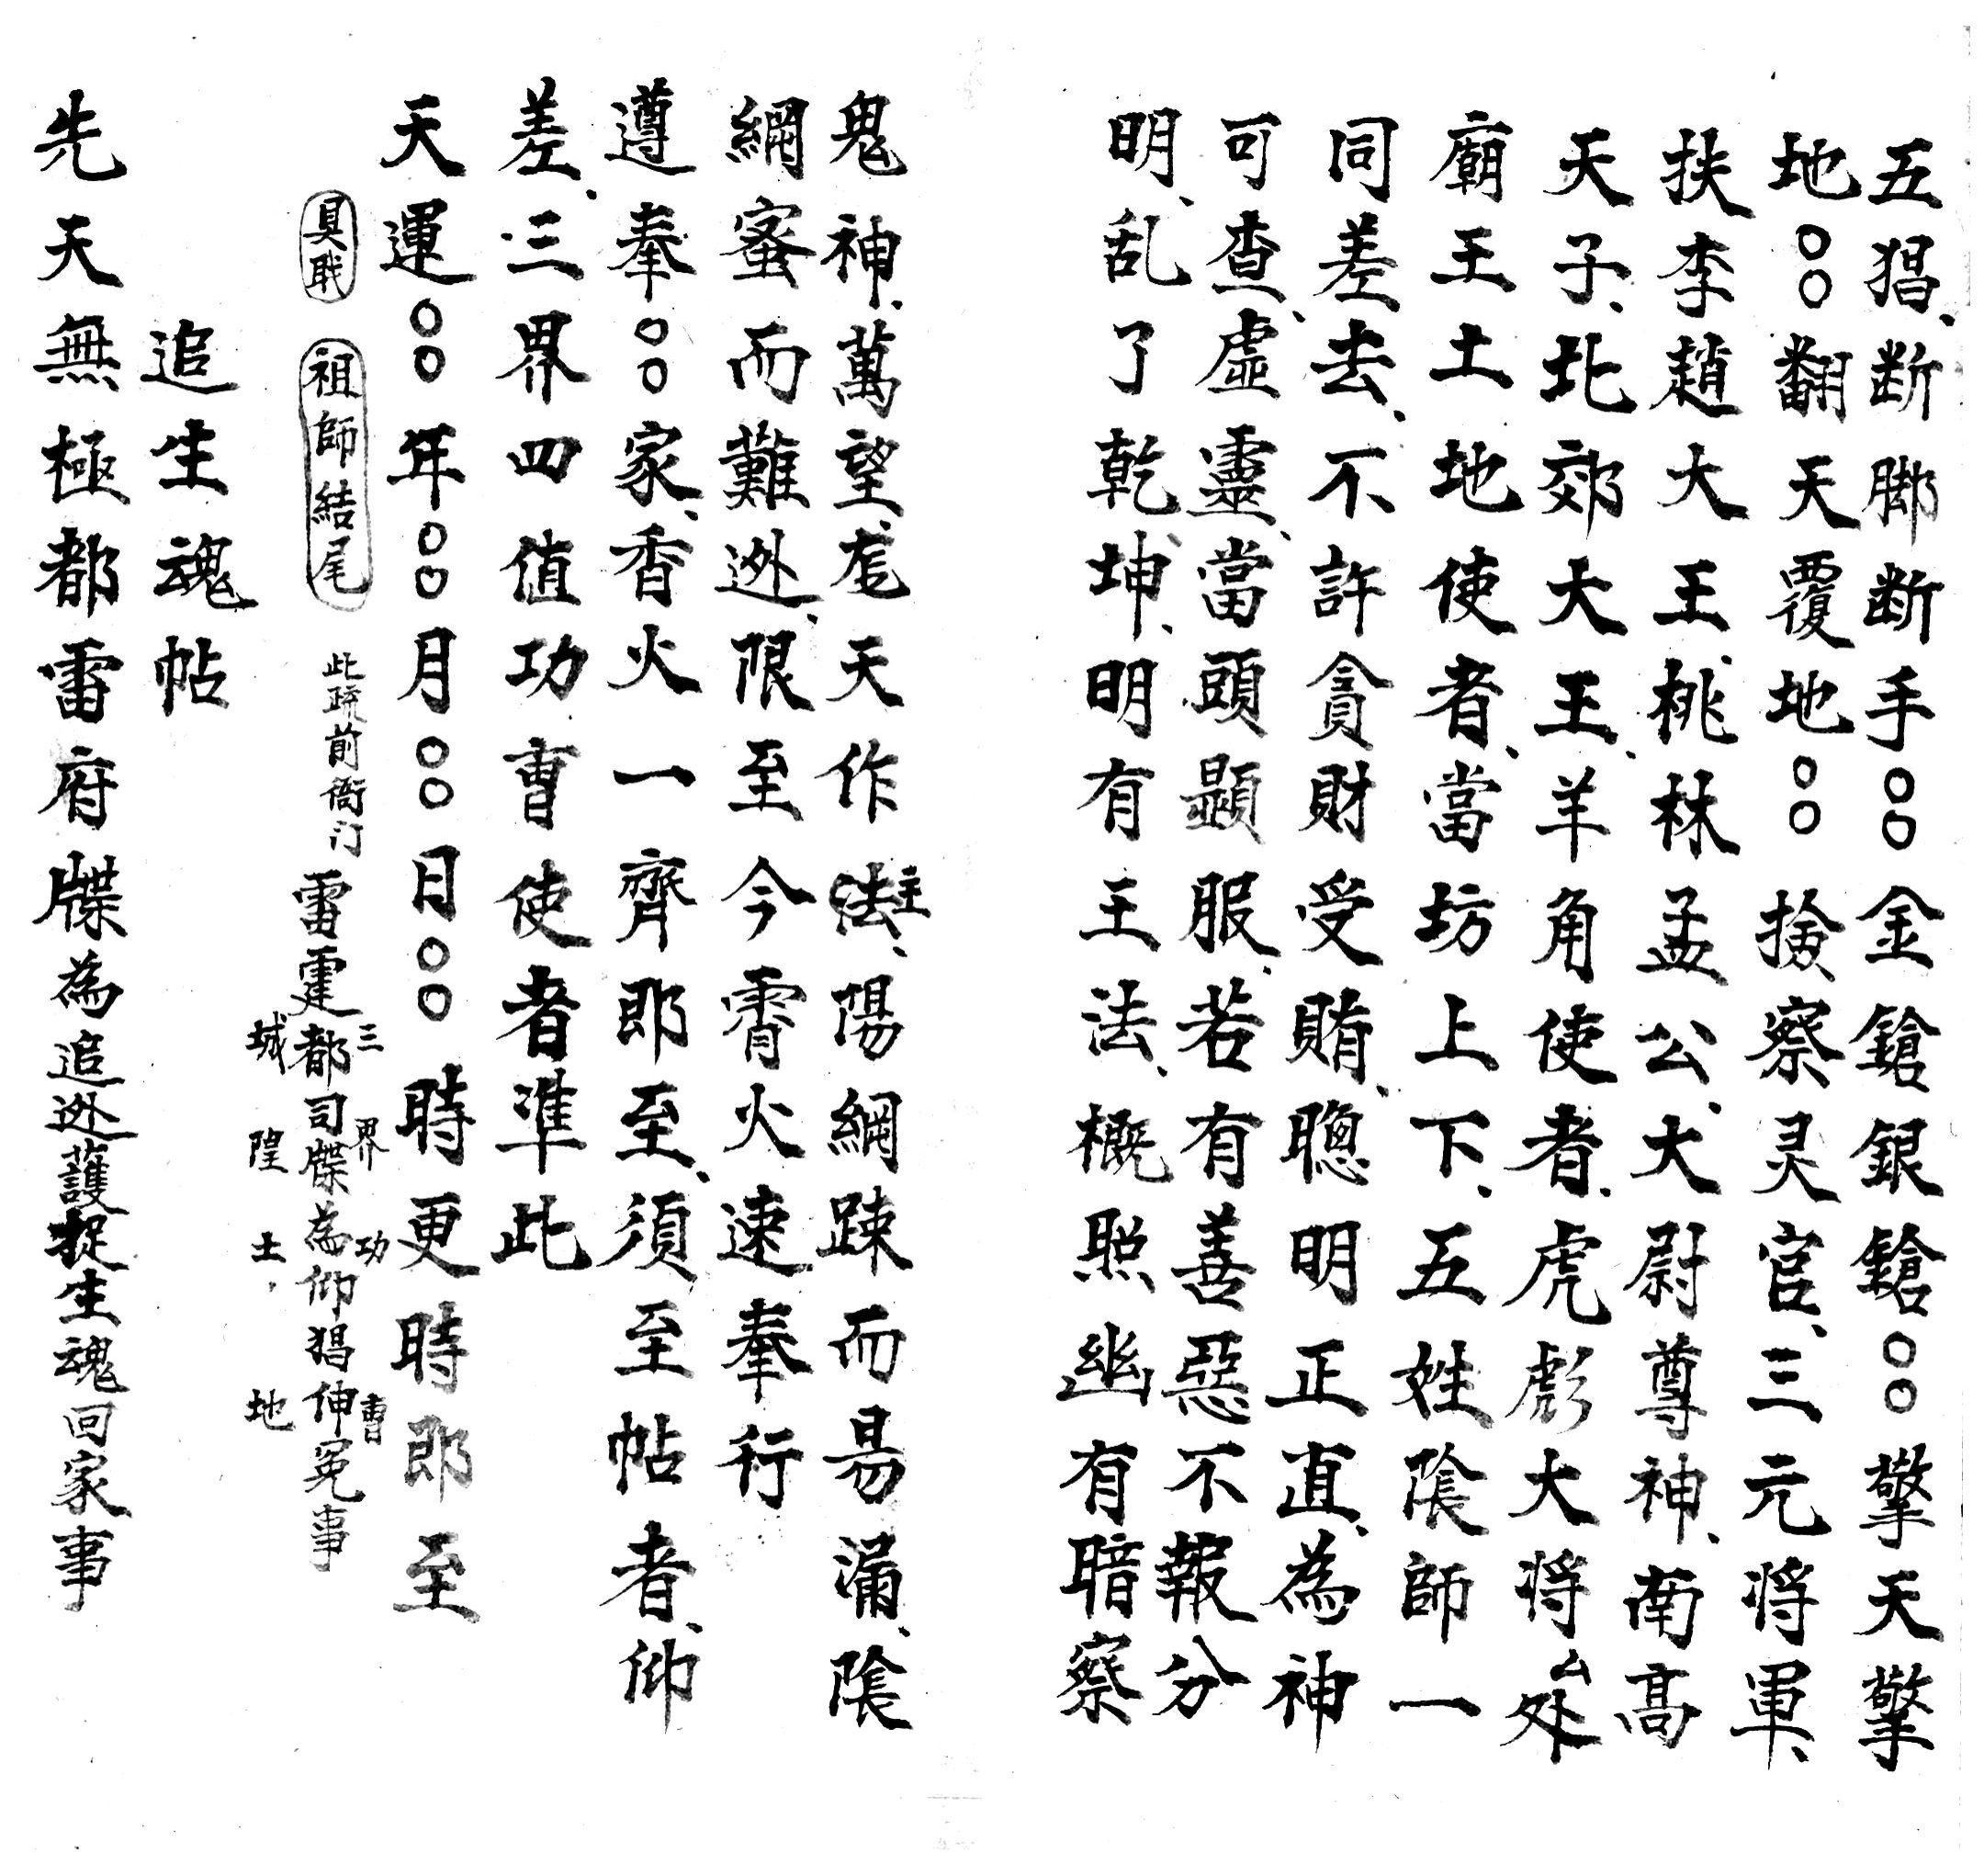 五猖、断脚断手○○金鎗銀鎗○○擎天擎
地○○翻天覆地○○撿察灵官、三元将軍、
扶李趙大王、桃林孟公、大尉尊神、南髙
天子、北郊大王、羊角使者、虎彪大将厶处
廟王土地使者、當坊上下、五姓陰師一
同差去、不許貪財受賄、聰明正直、為神
可查、虛靈、當頭顕服、若有善惡不報分
明、乱了乾坤、明有王法、概照幽有暗察
鬼神、萬望老天作主、陽綱踈而易漏、陰
綱蜜而難逊、限至今霄火速奉行
遵奉○○家、香火一齊即至、須至帖者、仰
差、三界四值功曹使者準此
天運○○年○○月○○日○○時更時即至
具职 祖師結尾 此疏前衙门 雷霆都司牒為仰猖伸冤事
三界功曹
城隍土地
追生魂帖
先天無極都雷府牒為追逊護捉生魂回家事